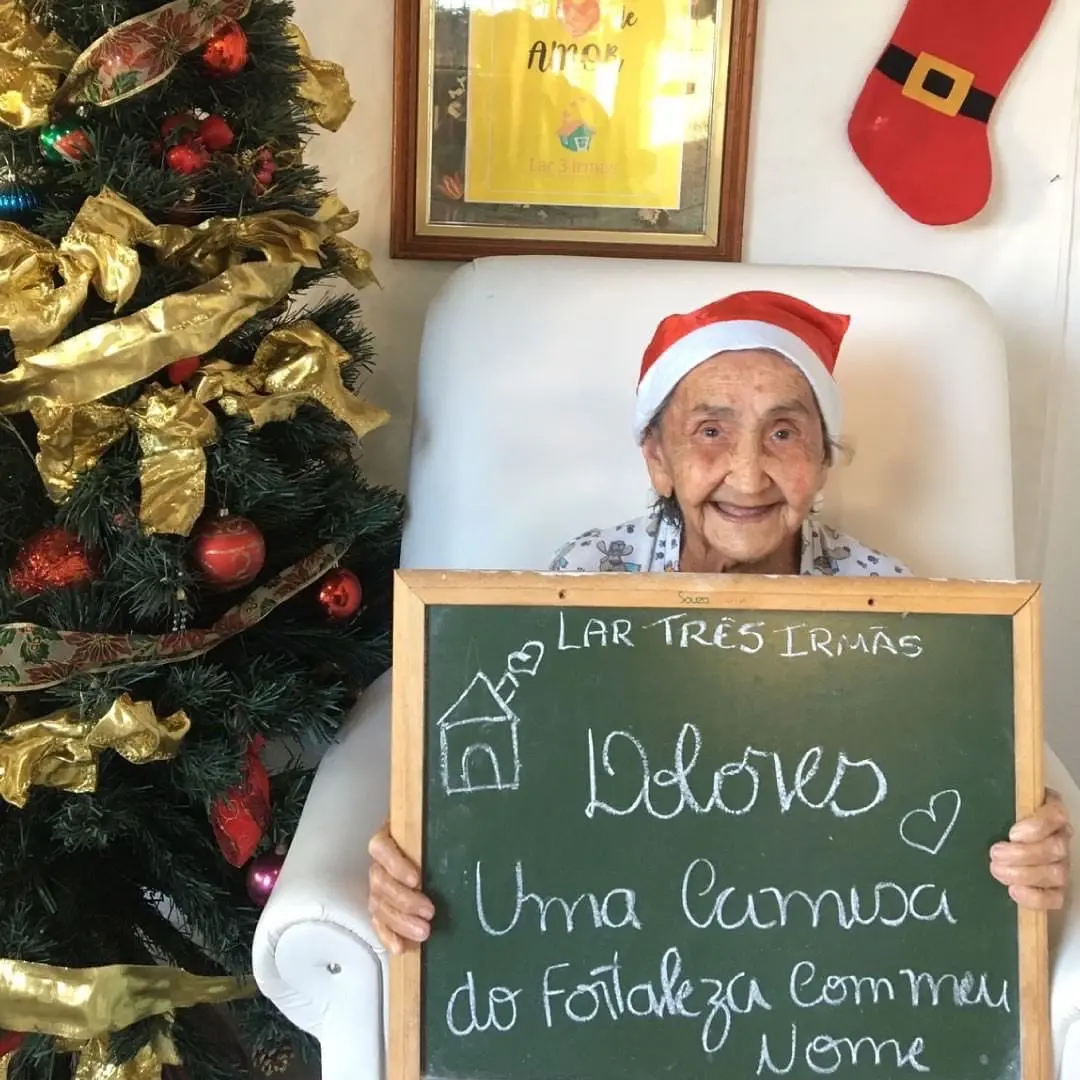 de
AMOR
Lar 3 Irmãs
Souza
LAR TRÊS IRMÃS
Dolores
Uma Camisa
do Fortaleza Com meu
Nome